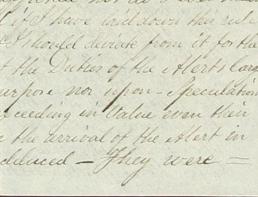 if I have laid down this rule
I should deviate from it for the
the Duties of the Alerts Carg
urpose nor upon - Speculation
xceeding in Value even their
the arrival of the Alert in
adduced — They were =